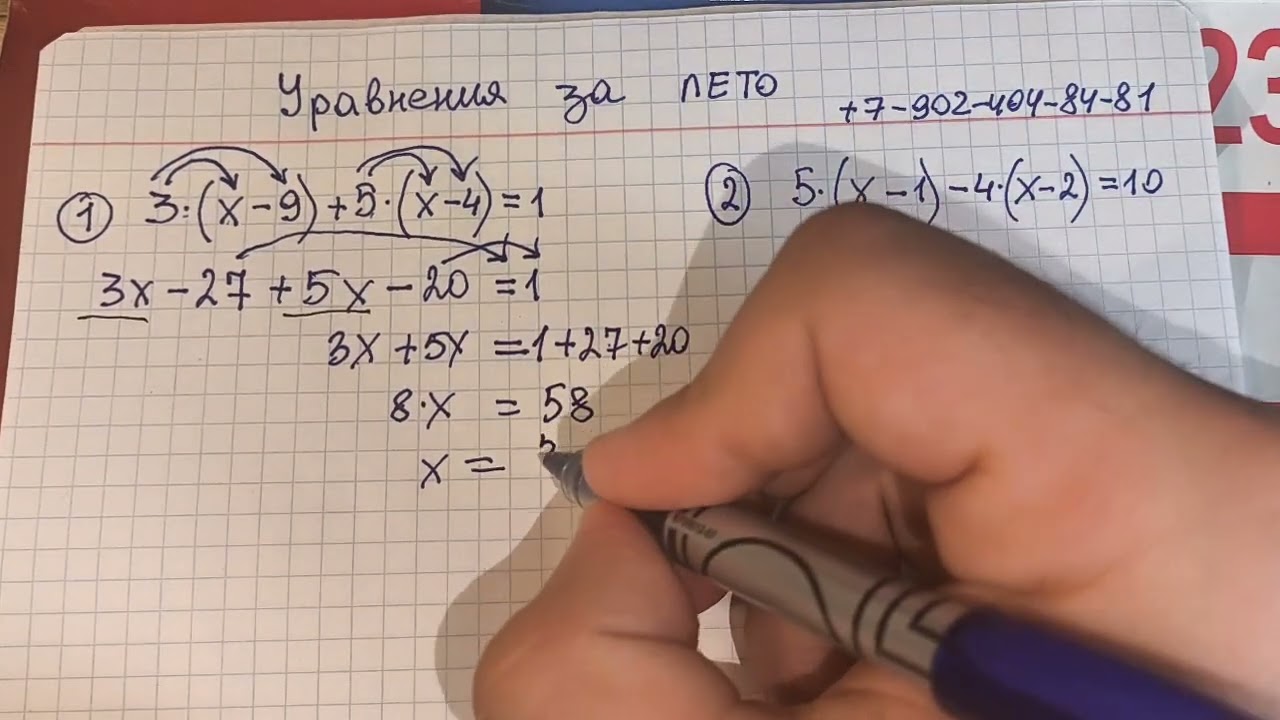 Уравнения за ЛЕТО
+7-902-404-84-81
① 3·(x-9)+5·(x-4)=1
3x-27+5x-20=1
3x+5x=1+27+20
8·x=58
x=
② 5·(x-1)-4·(x-2)=10
23